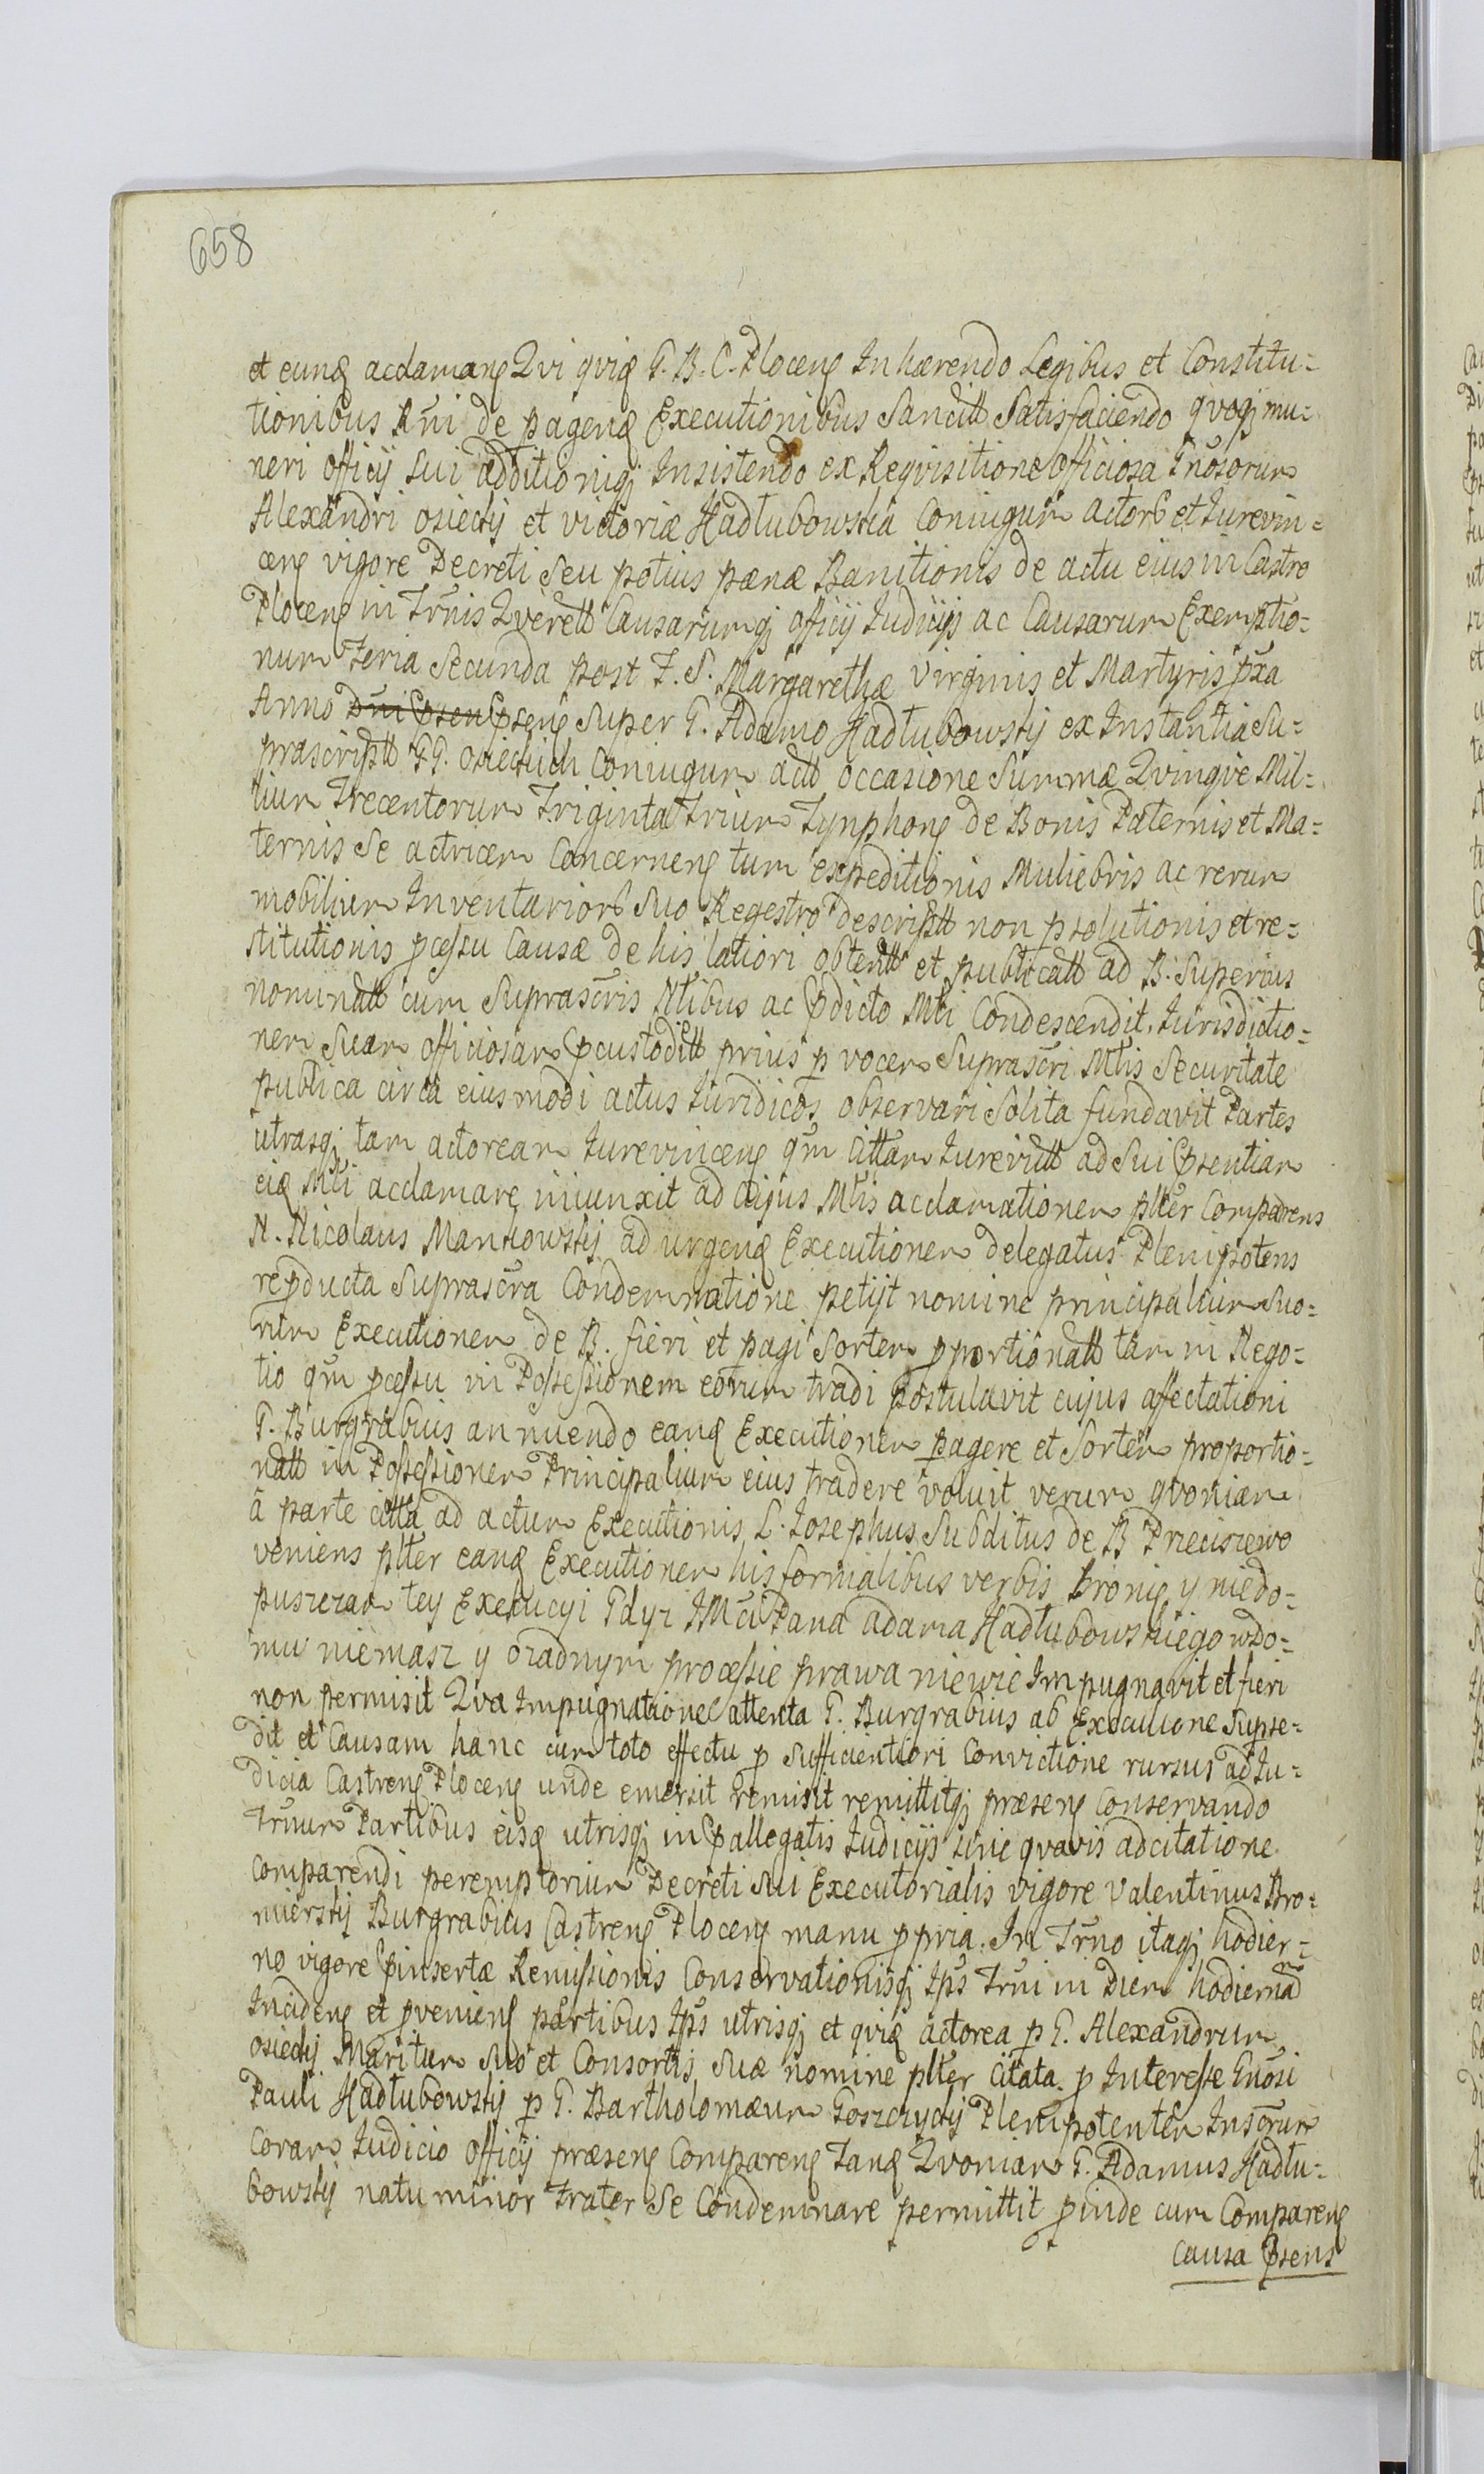 658
et eunq acclamanq Qvi qviq G. B. C. Plocenq Inhærendo Legibus et Constitu=
tionibus Rñi de pagenq Executionibus Sancitt Satisfaciendo qvoqj mu=
neri officij sui additionigj Insistendo ex Reqvisitione officiosa Gñosorum
Alexandri osiecky et victoriæ Hadłubowska Coniugum actorb et Jurevin=
cenq vigore Decreti Seu potius pænæ Banitionis de actu eius in Castro
Plocenq in Trñis Qverell Causarumqj officij Judicijs ac Causarum Exemptio=
num Feria Secunda post F. S. Margarethæ Virginis et Martyris pxa
Anno psenq Super G. Adamo Hadłubowsky ex Instantia Su=
prascriptt GG. Osieckich Coniugum actt occasione Summæ Qvinqve Mil=
lium Trecentorum Triginta Trium Tynphonq de Bonis Paternis et Ma=
ternis Se actricem Concernenq tum expeditionis Muliebris ac rerum
mobilium Inventariorb Suo Regestro descriptt non psolutionis et re=
stitutionis pcessu Causæ de his latiori obtentt et publicatt ad B. Superius
nominatt cum Suprascris Ntibus ac pdicto Mli Condescendit, Jurisdictio=
nem Suam officiosam pcustoditt prius p vocem Suprascri Mlis Securitate
publica circa eiusmodi actus Juridicos observari Solita fundavit Partes
utrasqj tam actoream Jurevincenq qm Cittam Jurevictt ad Sui psentiam
eiq Mli acclamare iniunxit ad Cujus Mlis acclamationem plter Comparens
N. Nicolaus Mankowsky ad urgenq Executionem delegatus Plenipotens
repducta Suprascra Condemnatione petijt nomine principalium Suo=
rum Executionem de B. fieri et pagi Sortem pportionatt tam in Nego=
tio qm pcessu in Possessionem eorum tradi postulavit cujus affectationi
G. Burgrabius annuendo eanq Executionem pagere et Sortem proportio=
natt in Possessionem Principalium eius tradere voluit verum qvoniam
â parte citta ad actum Executionis L. Josephus Subditus de B Prieciszewo
veniens plter eanq Executionem his formalibus verbis bronię y niedo=
puszczam tey Exekucyi Gdyz JMci Pana Adama Hadłubowskiego wdo=
mu niemasz y ozadnym processie prawa niewie Impugnavit et fieri
non permisit Qva Impugnatione attenta G. Burgrabius ab Executione Supse=
dit et Causam hanc cum toto effectu p Sufficientiori Convictione rursus ad Ju=
dicia Castrenq Plocenq unde emersit remisit remittitqj præsenq Conservando
Trñum Partibus eisq utrisqj in pallegatis Judicijs sine qvavis adcitatione
comparendi peremptorium Decreti Sui Executorialis vigore Valentinus Bro=
niersky Burgrabius Castrenq Plocenq manu ppria. In Trño itaqj hodier=
no vigore pinsertæ Remissionis Conservationisqj Ips Trñi in Diem hodiernam
Incidenq et pvenienq partibus Ips utrisqj et qviq actorea p G. Alexandrum
osiecky Maritum Suo et Consortis Suæ nomine plter Citata p Interesse Gñosi
Pauli Hadłubowsky p G. Bartholomæum Goszczycky Plenipotentem Inscrum
Coram Judicio Officij præsenq Comparenq Tanq Qvoniam G. Adamus Hadłu=
bowsky natu minor Frater Se Condemnare permittit pinde cum Comparenq
Causa psens